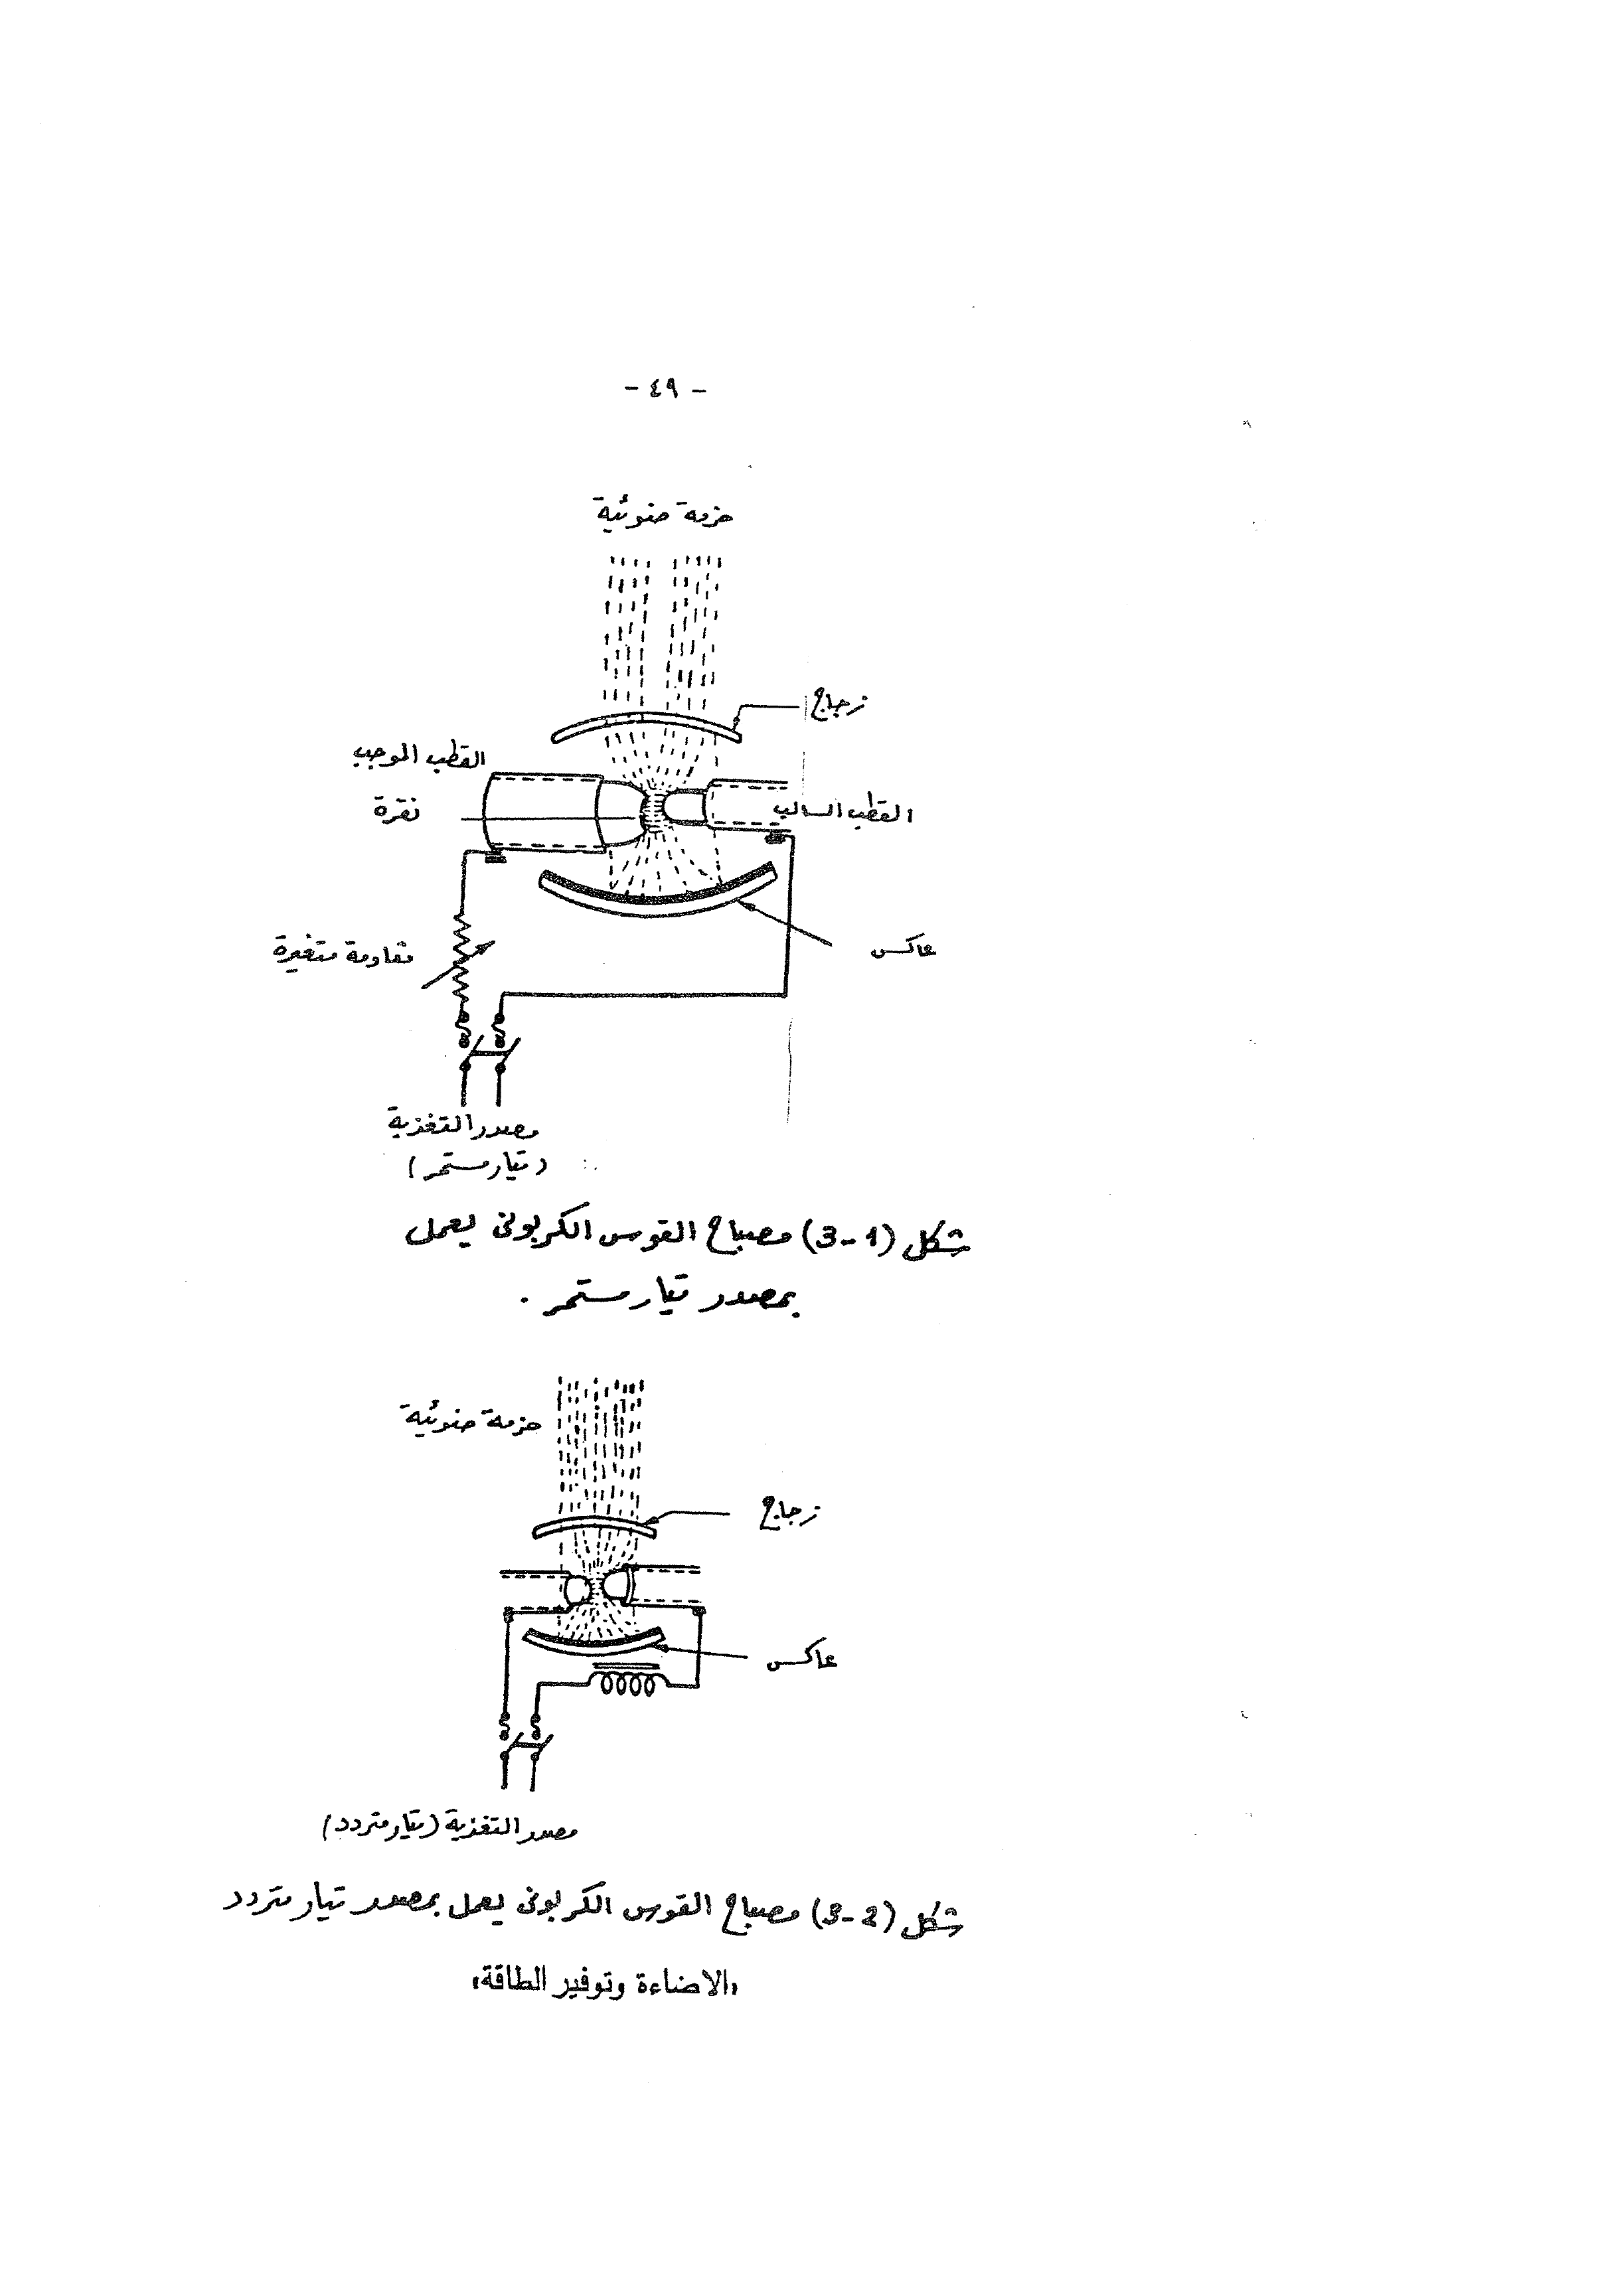 - ٤٩ -
حزمة ضوئية
زجاج
القطب الموجب
نقرة
القطب السالب
عاكس
مقاومة متغيرة
مصدر التغذية
(تيار مستمر)
شكل (1-3) مصباح القوس الكربونى يعمل
بمصدر تيار مستمر .
حزمة ضوئية
زجاج
عاكس
مصدر التغذية (تيار متردد)
شكل (2-3) مصباح القوس الكربونى يعمل بمصدر تيار متردد
،الاضاءة وتوفير الطاقة،